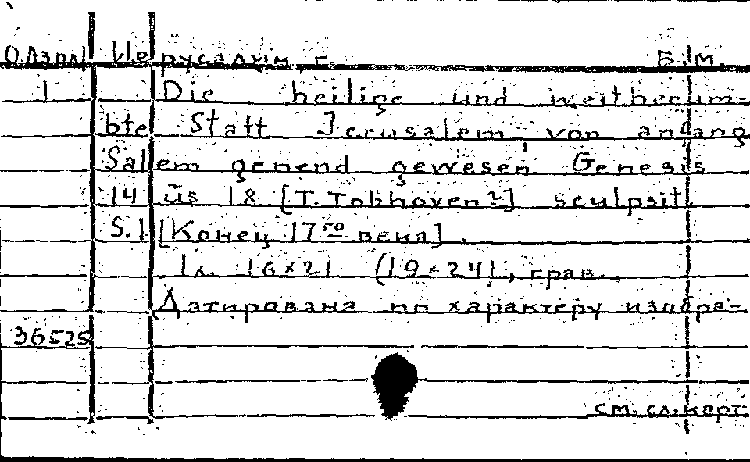 О.Лзрл Иерусалим, г. Б.м.
1 Die heilige und weitberum-
bte Statt Jerusalem, von anfang
Salem genend gewesen Genesis
14 üs 18 [T. Tobhoven?] sculpsit.
S.l [Конец 17го века].
1л. 16×21 (19×24), грав.
Датирована по характеру изобра-
36525
см. сл. карт.